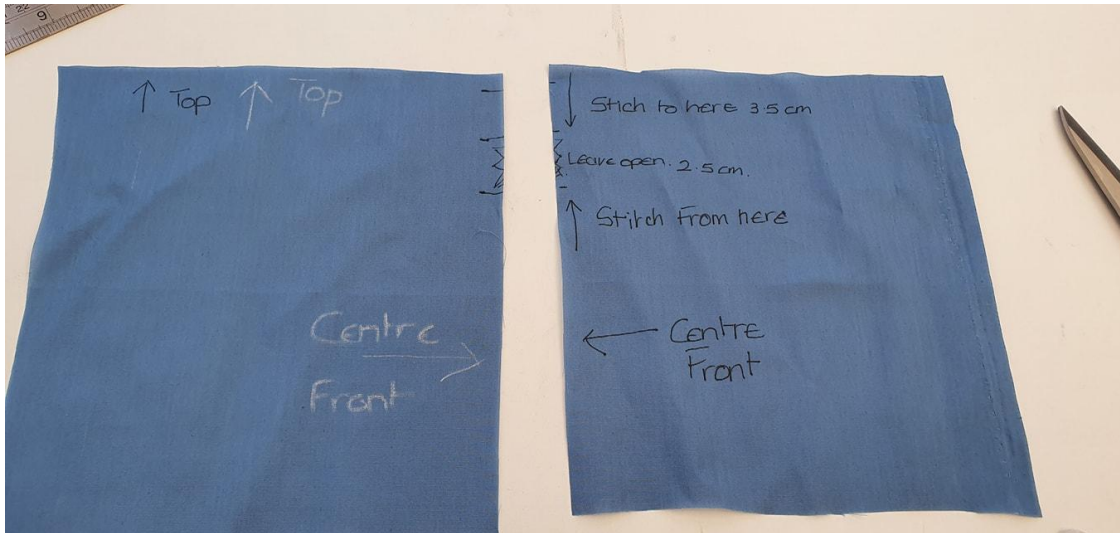 22
9
Top
Top
Centre
Front
Stich to here 3.5 cm
Leave open. 2.5 cm.
Stitch From here
Centre
Front